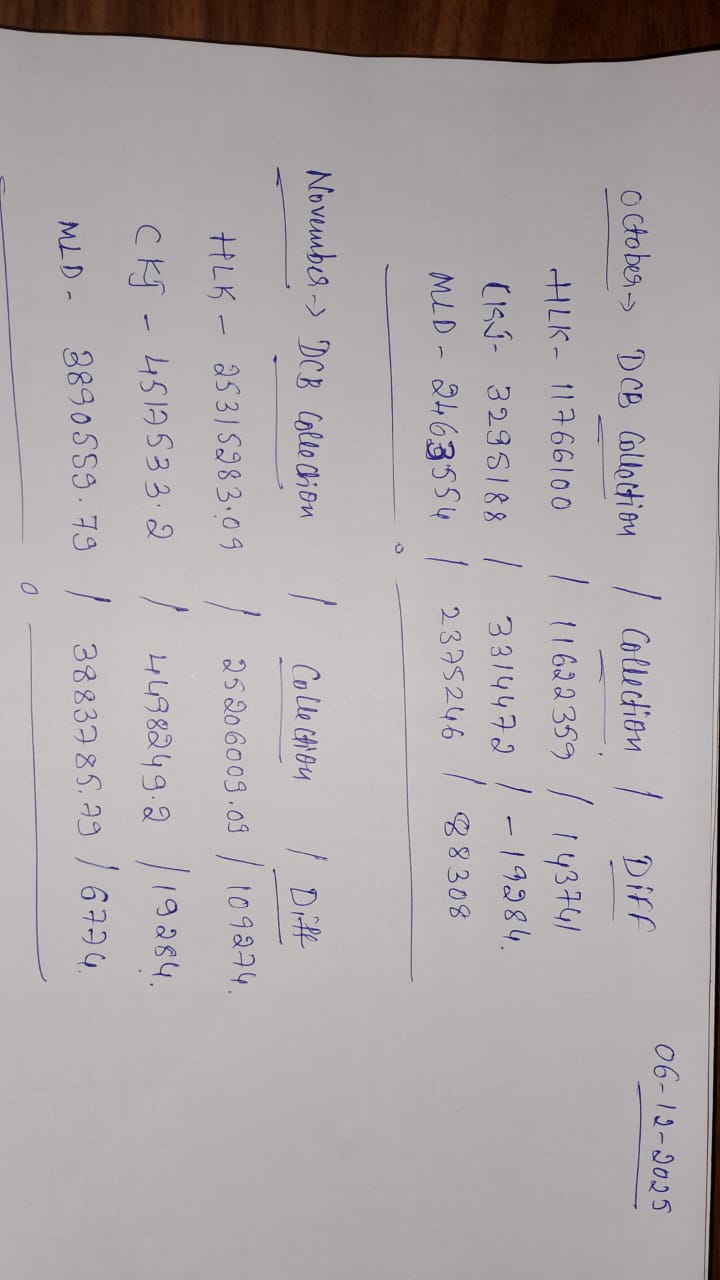 06-12-2025
October → DCB Collection / Collection / Diff
HLK - 11766100 / 11622359 / 143741
CKJ - 3295188 / 3314472 / -19284.
MLD - 2463554 / 2375246 / 88308
November → DCB Collection / Collection / Diff
HLK - 25315283.09 / 25206009.09 / 109274.
CKJ - 4517533.2 / 4498249.2 / 19284.
MLD - 3890559.79 / 3883785.79 / 6774.